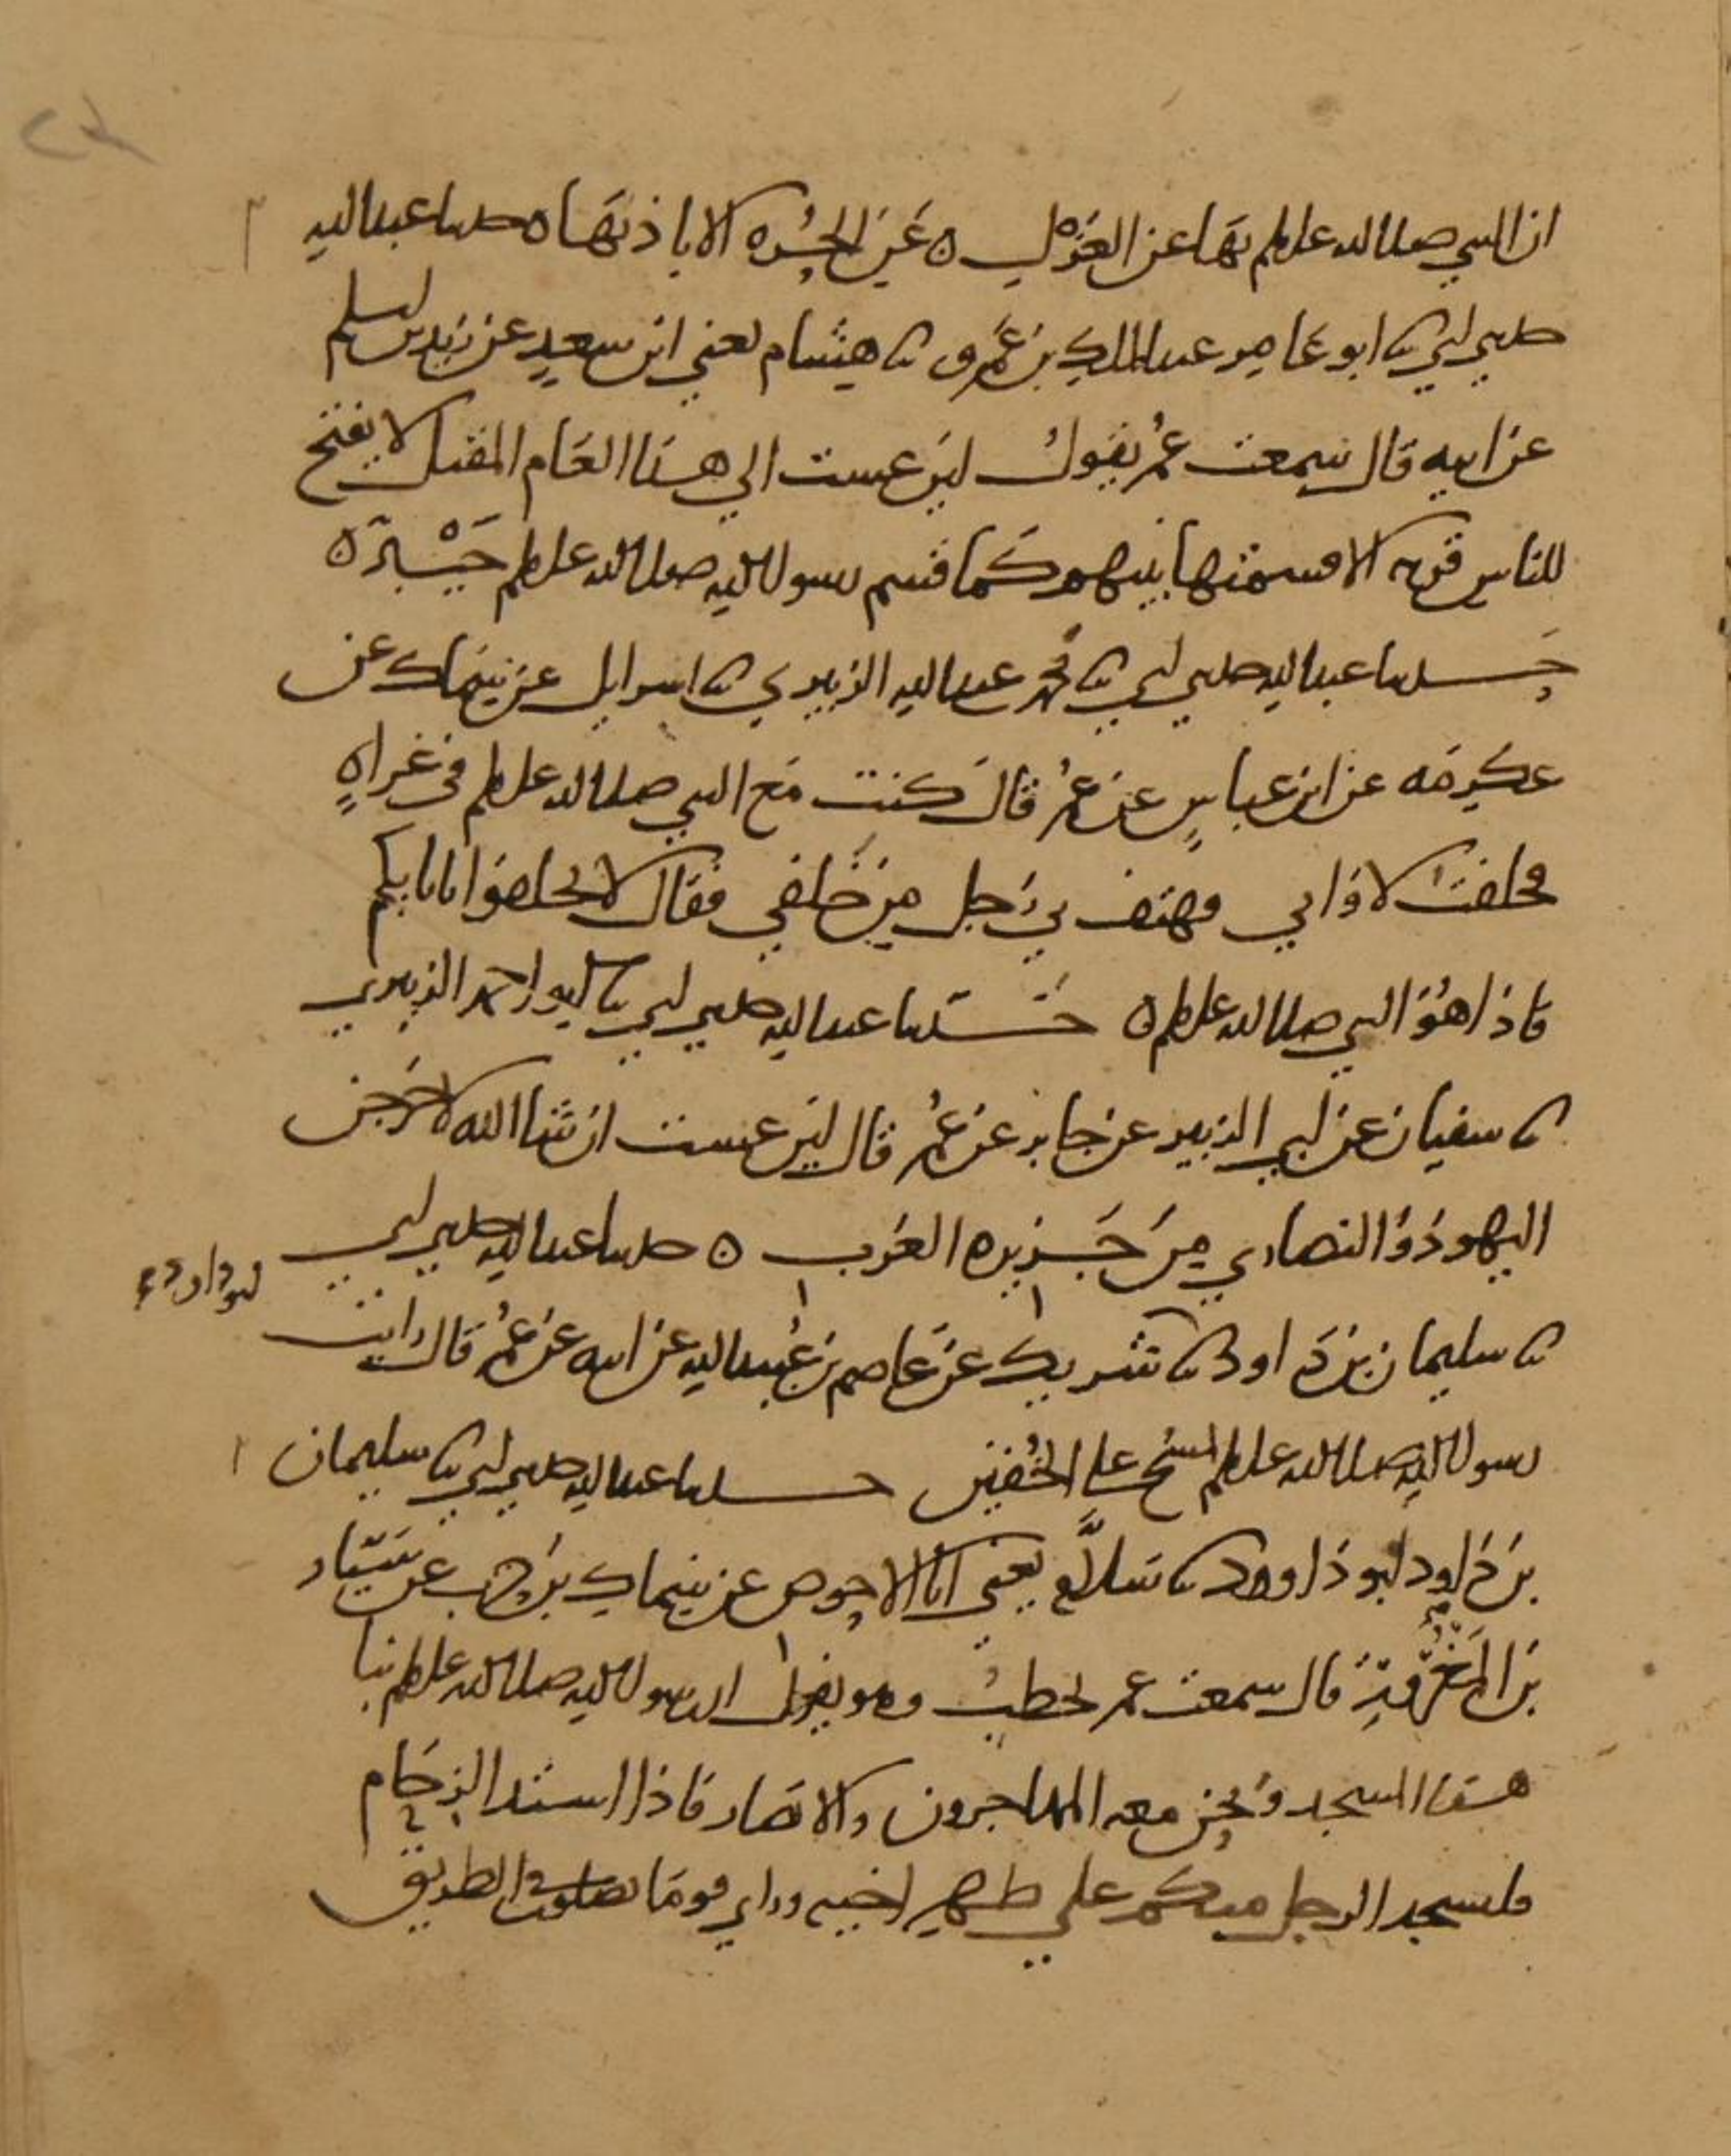 ان النبي صلى الله عليه وسلم نها عن العزل عن الحره الا باذنها ه حدثنا عبد الله
حدثني ابي نا ابو عامر عبد الملك بن عمرو نا هشام يعني ابن سعد عن زيد بن اسلم
عن ابيه قال سمعت عمر يقول لين عست الي هذا العام المقبل لا يفتح
للناس قريه الا قسمتها بينهم كما قسم رسول الله صلى الله عليه وسلم خيبر ه
حدثنا عبد الله حدثني ابي نا محمد عبد الله الزبيري نا اسرايل عن سماك عن
عكرمه عن ابن عباس عن عمر قال كنت مع النبي صلى الله عليه وسلم في غزاه
فحلفت لا وابي فهتف بي رجل من خلفي فقال لا تحلفوا بابايكم
فاذا هو النبي صلى الله عليه وسلم ه حدثنا عبد الله حدثني ابي نا ابو احمد الزبيري
نا سفيان عن ابي الزبير عن جابر عن عمر قال لين عست ان شا الله لاخرجن
اليهود والنصاري من جزيره العرب ه حدثنا عبد الله حدثني ابي
نا سليمان بن داود نا شريك عن عاصم بن عبيد الله عن ابيه عن عمر قال رايت
رسول الله صلى الله عليه وسلم يمسح علي الخفين حدثنا عبد الله حدثني ابي نا سليمان
بن داود ابو داوود نا سلام يعني ابا الاحوص عن سماك بن حرب عن سيار
بن المعرور قال سمعت عمر يخطب وهو يقول ان رسول الله صلى الله عليه وسلم بنا
هذا المسجد ونحن معه المهاجرون والانصار فاذا اشتد الزحام
فليسجد الرجل منكم علي ظهر اخيه وراي قوما يصلون في الطريق